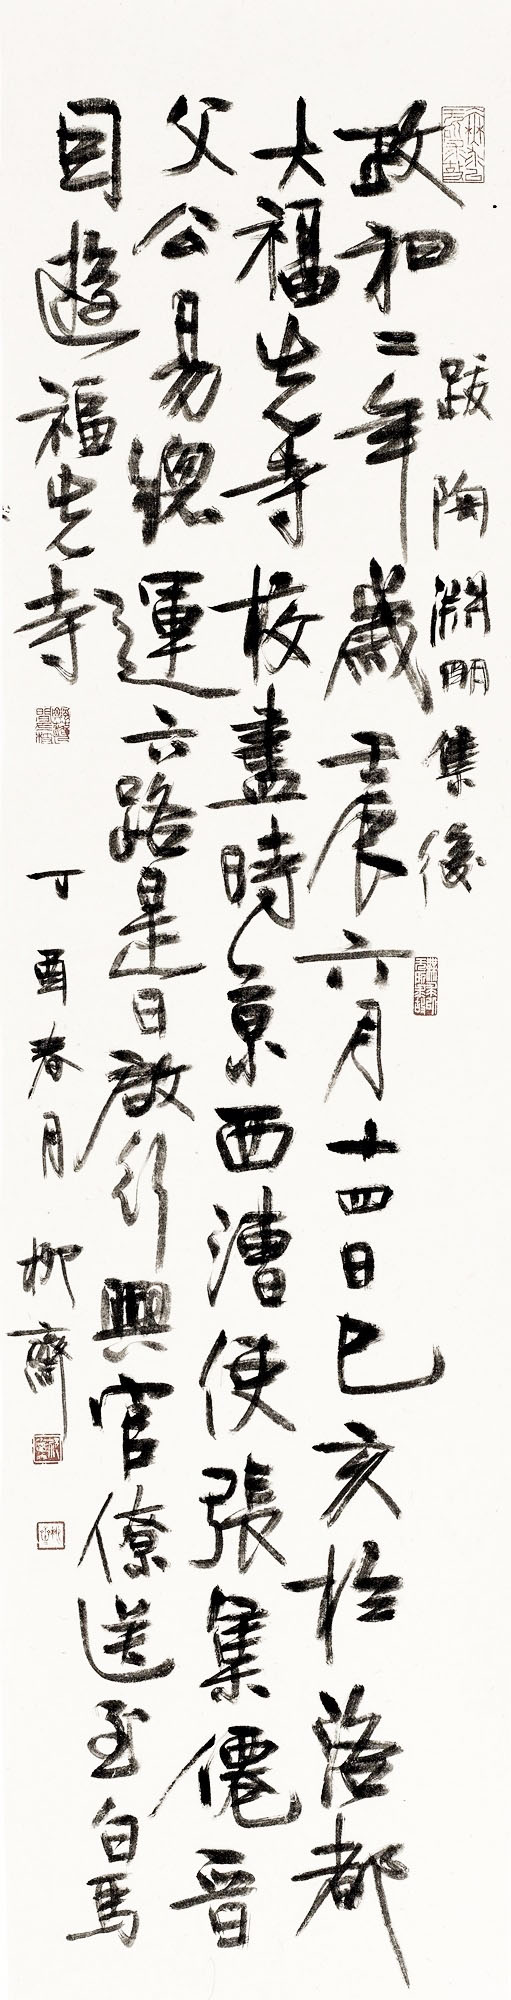 跋陶淵明集後
政和二年歲壬辰六月十四日己亥於洛都
大福先寺校盡時京西漕使張集僊晉
父公易總運六路是日啟行興官僚送至白馬
因遊福先寺
丁酉春月 柳齋